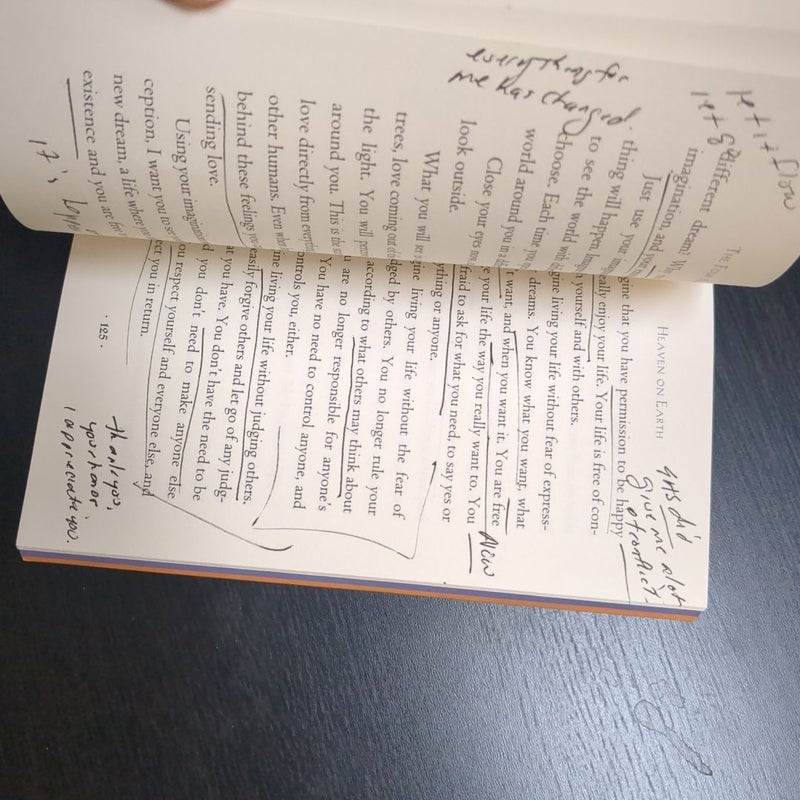 let it flow
let go
THE
different dream:
imagination, and
Just use your
thing will happen.
to see the world
choose. Each time you
world around you in a
Close your eyes
look outside.
What you will
trees, love coming out of
the light. You will
around you. This is the
love directly from
other humans. Even
behind these feelings
sending love.
Using your
ception, I want you to
new dream, a life where
existence and you are
everything for
me has changed.
it's
HEAVEN ON EARTH
that you have permission to be happy
enjoy your life. Your life is free of con-
yourself and with others.
living your life without fear of express-
dreams. You know what you want, what
want, and when you want it. You are free
your life the way you really want to. You
to ask for what you need, to say yes or
anything or anyone.
living your life without the fear of
judged by others. You no longer rule your
according to what others may think about
are no longer responsible for anyone's
You have no need to control anyone, and
controls you, either.
living your life without judging others.
easily forgive others and let go of any judg-
you have. You don't have the need to be
you don't need to make anyone else
respect yourself and everyone else, and
you in return.
· 125 ·
did
give me a lot
of conflict.
Now
thank you,
your honor
I appreciate you.